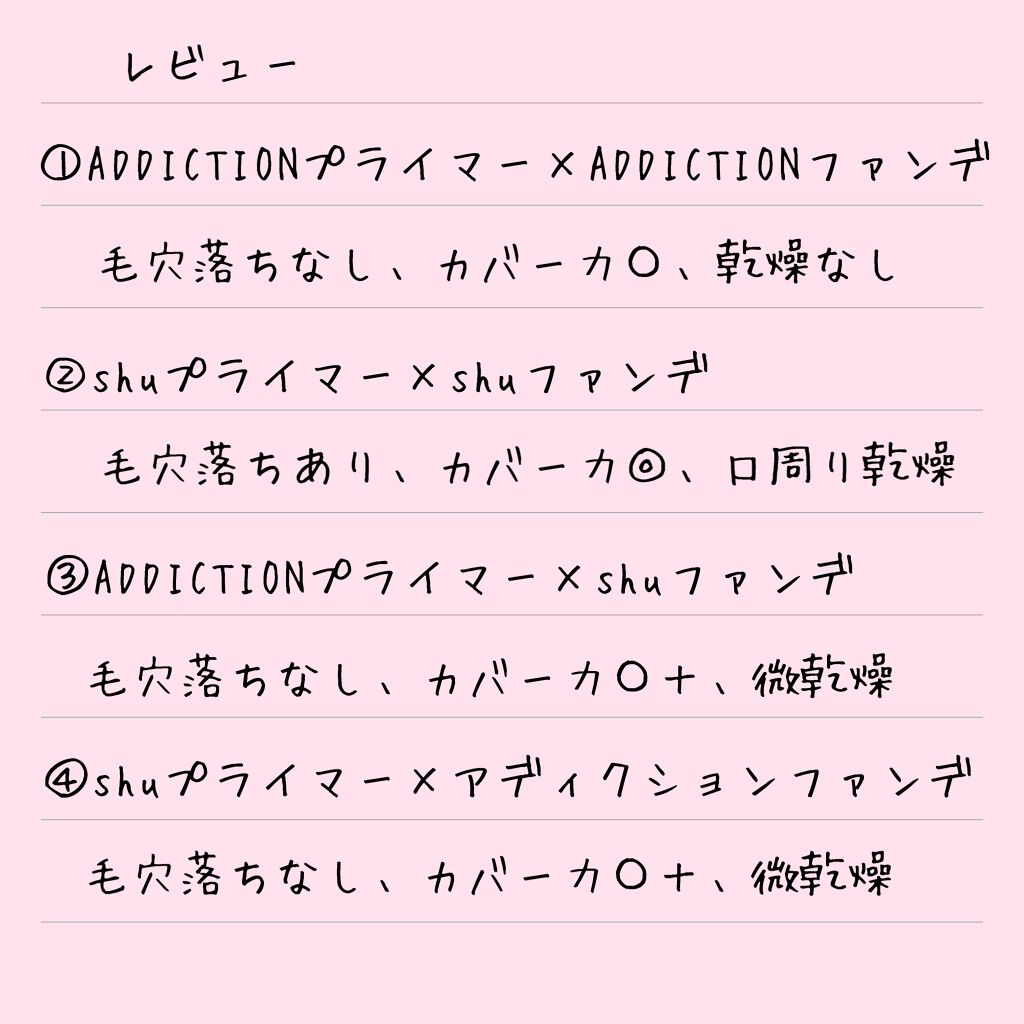 レビュー
①ADDICTIONプライマー×ADDICTIONファンデ
毛穴落ちなし、カバー力〇、乾燥なし
②shuプライマー×shuファンデ
毛穴落ちあり、カバー力◎、口周り乾燥
③ADDICTIONプライマー×shuファンデ
毛穴落ちなし、カバー力〇+、微乾燥
④shuプライマー×アディクションファンデ
毛穴落ちなし、カバー力〇+、微乾燥